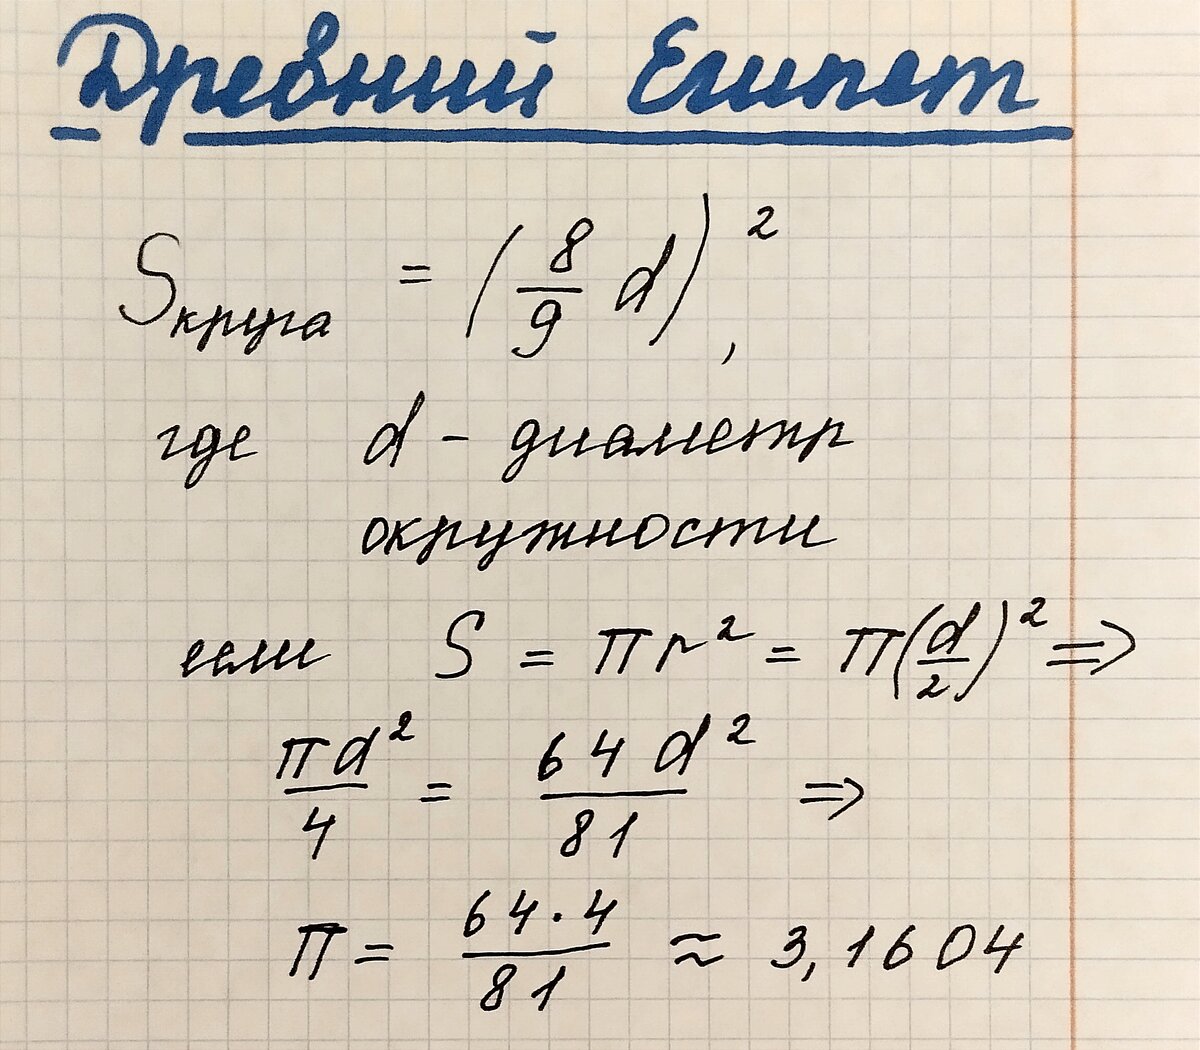 Древний Египет
Sкруга = (8/9 d)²,
где d - диаметр
окружности
если S = πr² = π(d/2)² =>
πd²/4 = 64d²/81 =>
π = 64·4/81 ≈ 3,1604